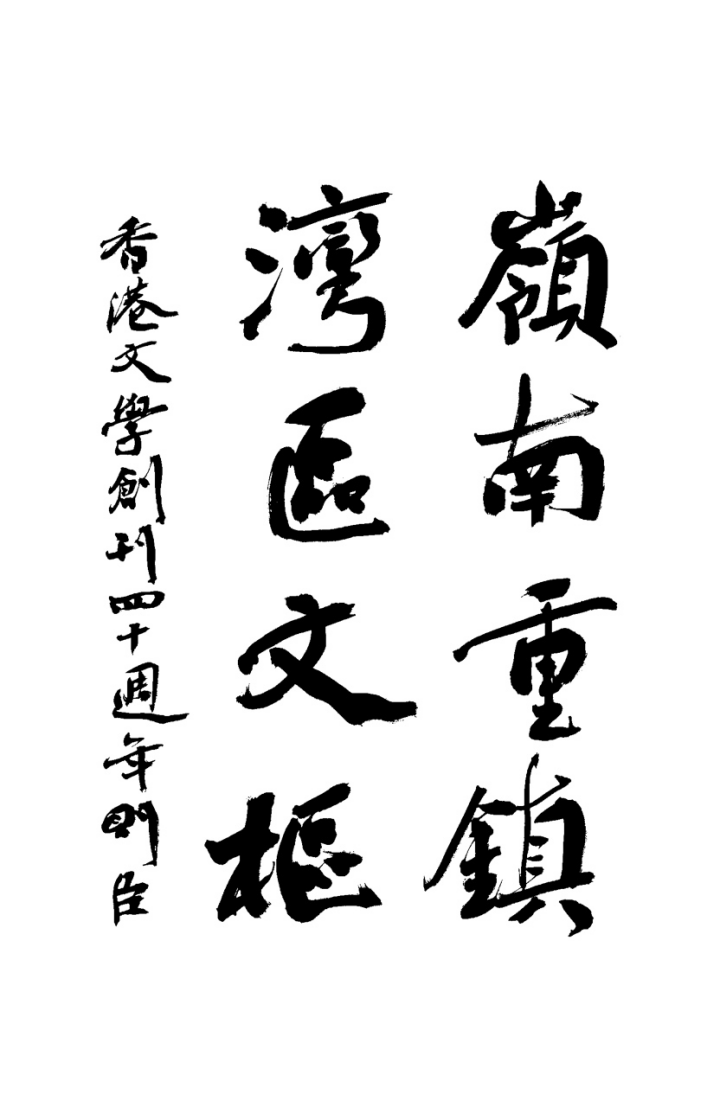 嶺南重鎮
灣區文樞
香港文學創刊四十週年則臣